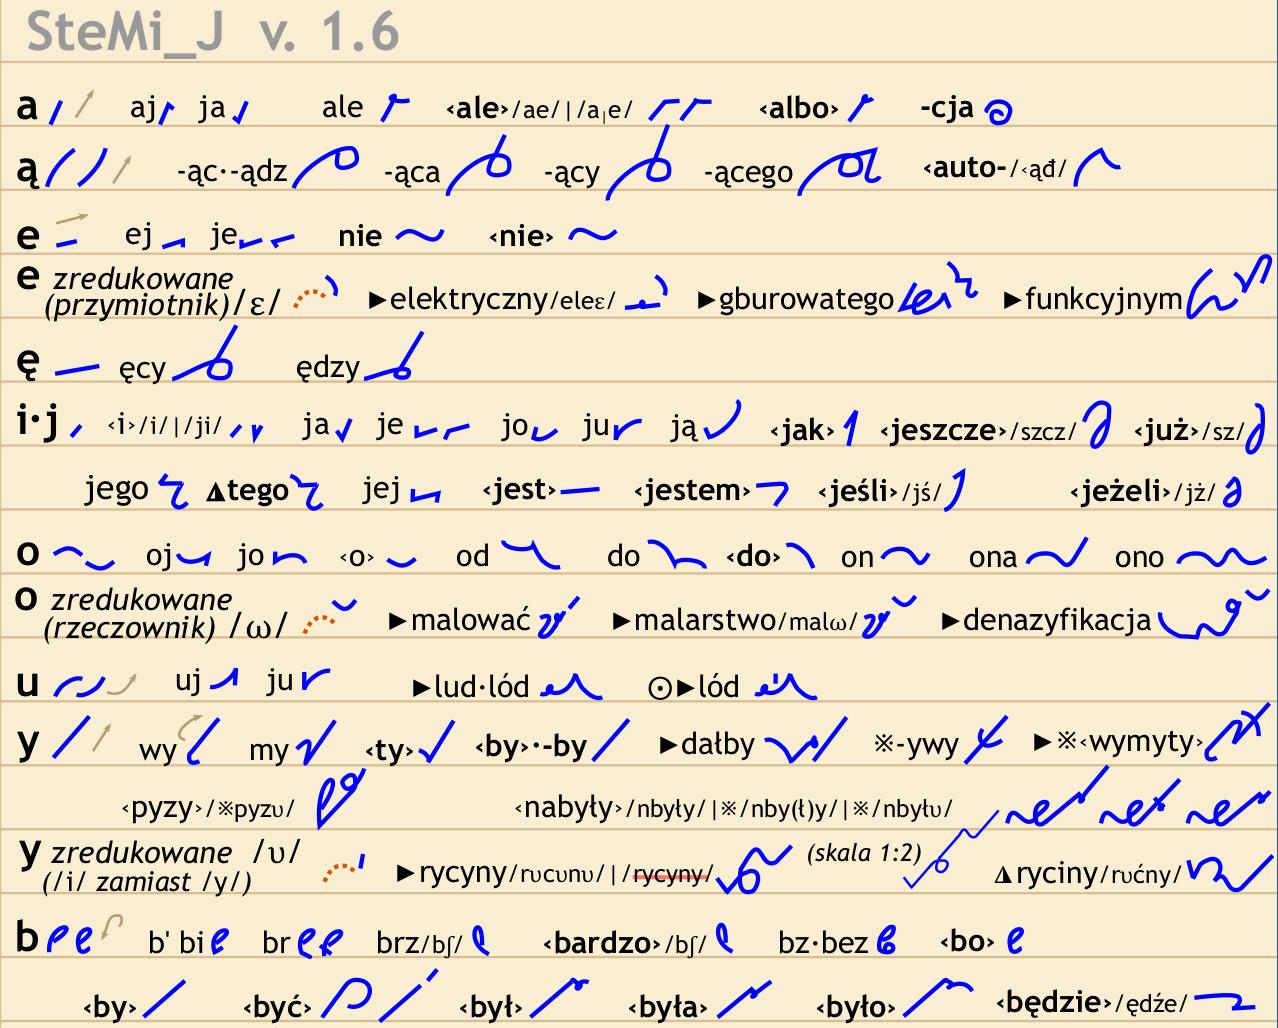 SteMi_J v. 1.6
a aj ja ale ‹ale›/ae/|/a|e/ ‹albo› -cja
ą -ąc·-ądz -ąca -ący -ącego ‹auto-/‹ąđ/
e ej je nie ‹nie›
e zredukowane (przymiotnik)/ε/ ►elektryczny/eleε/ ►gburowatego ►funkcyjnym
ę ęcy ędzy
i·j ‹i›/i/|/ji/ ja je jo ju ją ‹jak› ‹jeszcze›/szcz/ ‹już›/sz/
jego ◮tego jej ‹jest› ‹jestem› ‹jeśli›/jś/ ‹jeżeli›/jż/
o oj jo ‹o› od do ‹do› on ona ono
o zredukowane (rzeczownik) /ω/ ►malować ►malarstwo/malω/ ►denazyfikacja
u uj ju ►lud·lód ⊙►lód
y wy my ‹ty› ‹by›·-by ►dałby ※-ywy ►※‹wymyty›
‹pyzy›/※pyzυ/ ‹nabyły›/nbyły/|※/nby(ł)y/|※/nbyłυ/
y zredukowane /υ/ (/i/ zamiast /y/) ►rycyny/rυcυnυ/|/rycyny/ (skala 1:2) ◮ryciny/rυćny/
b b' bi br brz/bʃ/ ‹bardzo›/bʃ/ bz·bez ‹bo›
‹by› ‹być› ‹był› ‹była› ‹było› ‹będzie›/ędźe/